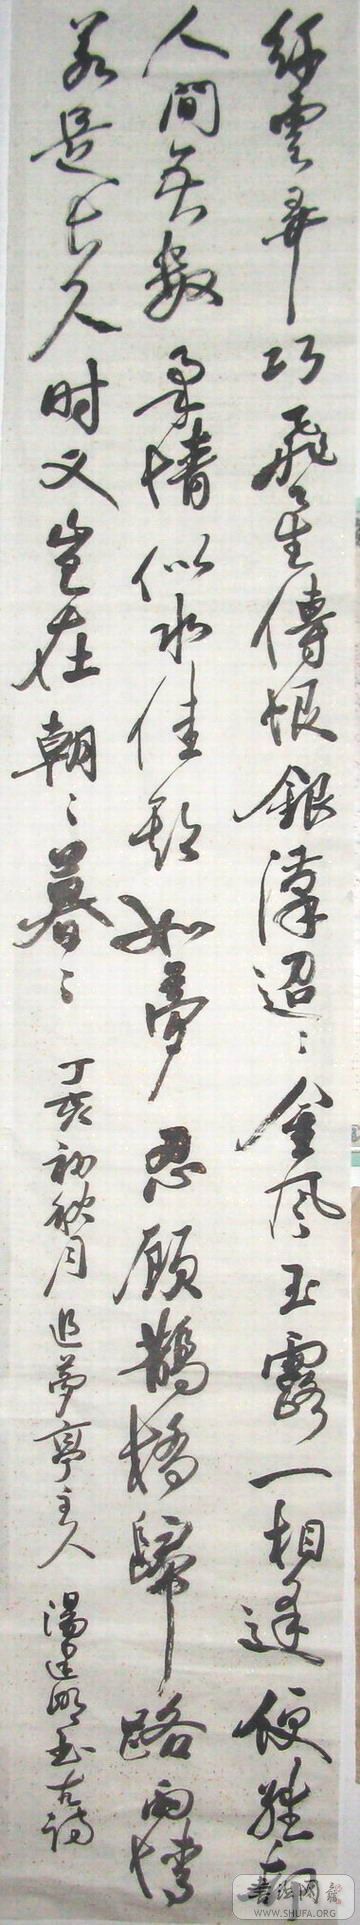 纤雲弄巧飛星傳恨銀漢迢〻金风玉露一相逢便勝却
人間無数柔情似水佳期如夢忍顧鵲橋歸路兩情
若是長久时又豈在朝〻暮〻
丁亥初秋月追夢亭主人湯建明書古詩
书法网
WWW.SHUFA.ORG